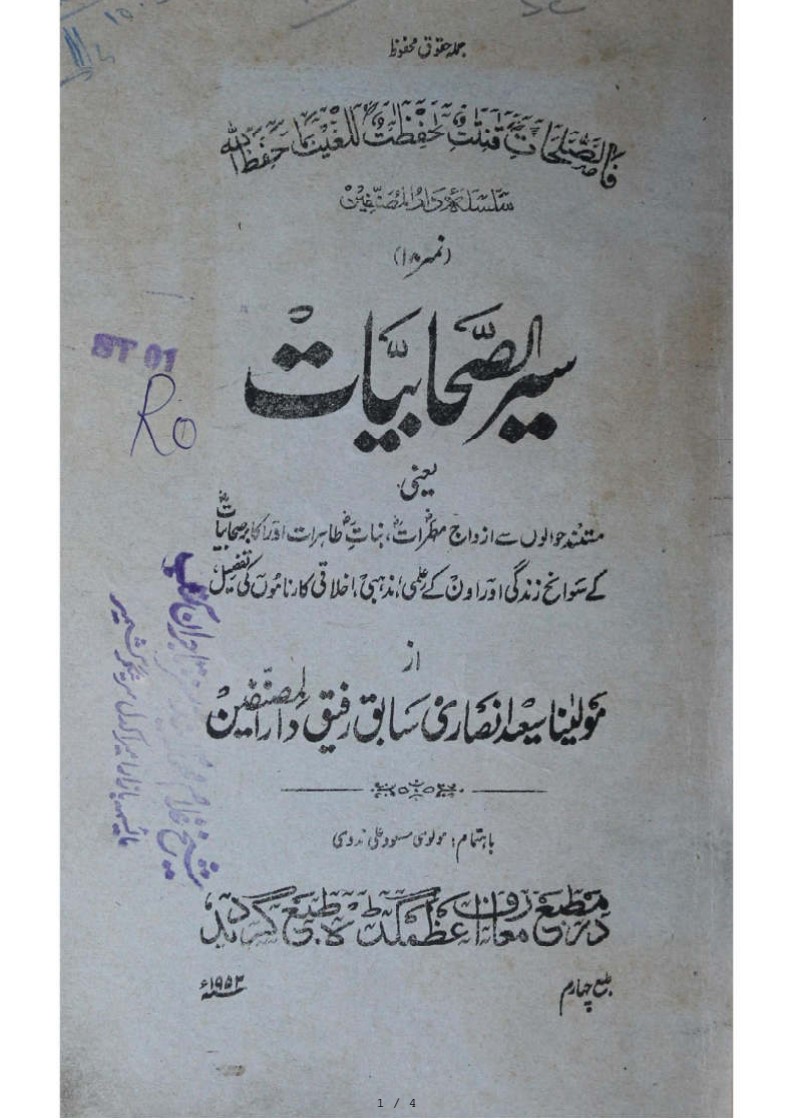 جملہ حقوق محفوظ
فالصّٰلحٰت قٰنتٰت حٰفظٰت للغیب بما حفظ اللہ
سلسلۂ دارالمصنّفین
(نمبر ۱۸)
سیر الصّحابیّات
یعنی
مستند حوالوں سے ازواج مطہراتؓ، بناتِ طاہراتؓ اور اکابر صحابیاتؓ
کے سوانح زندگی اور اون کے علمی، مذہبی، اخلاقی کارناموں کی تفصیل،
از
مولینا سعید انصاری سابق رفیق دارالمصنّفین
باہتمام: مولوی مسعود علی ندوی
در مطبع معارف اعظم گڈھ طبع گردید،
طبع چہارم
۱۹۵۳ء
ST 01
Ro
1 / 4